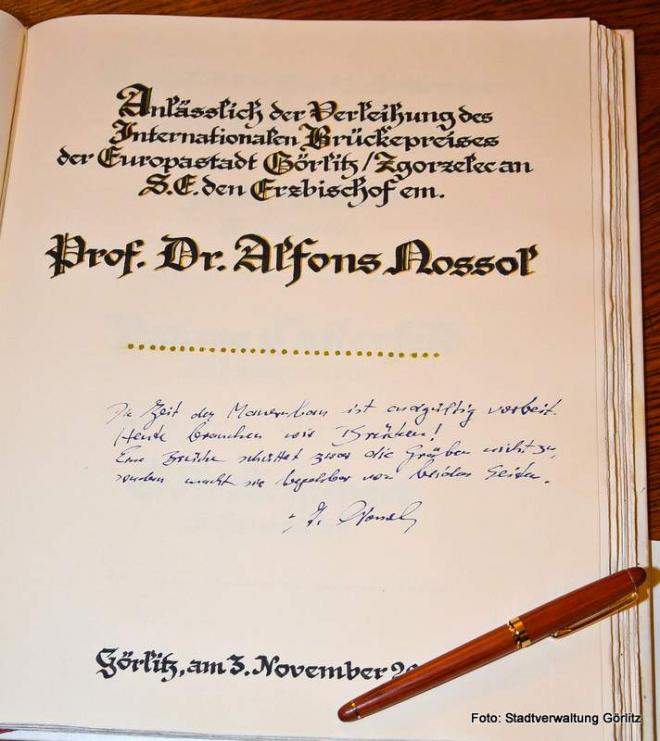 Anlässlich der Verleihung des
Internationalen Brückepreises
der Europastadt Görlitz/Zgorzelec an
S.E. den Erzbischof em.
Prof. Dr. Alfons Nossol
Die Zeit des Mauerbaus ist endgültig vorbei.
Heute brauchen wir Brücken!
Eine Brücke schüttet zwar die Gräben nicht zu,
sondern macht sie begehbar von beiden Seiten.
Nossol
Görlitz, am 3. November 20
Foto: Stadtverwaltung Görlitz